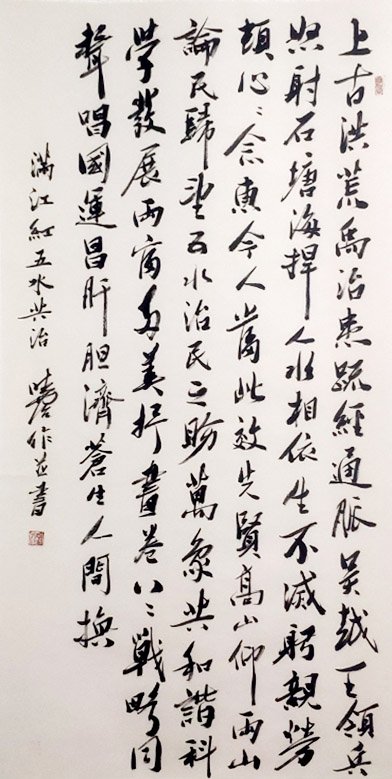 上古洪荒禹治患疏经通脈吴越王領兵
怒射石塘海捍人水相依生不滅躬親勞
頓心〻念恵今人嵩此效先賢高山仰两山
論民歸望五水治民之盼萬象共和諧科
學發展两窗多美好畫卷八〻戰略同
聲唱國運昌肝胆濟蒼生人間換
满江红五水共治 作並書